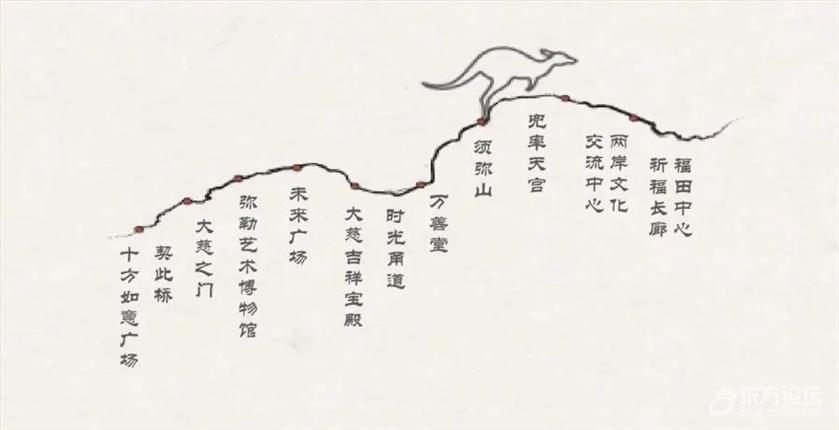 十方如意广场
契此桥
大慈之门
弥勒艺术博物馆
未来广场
大慈吉祥宝殿
时光甬道
万善堂
须弥山
兜率天宫
两岸文化
交流中心
福田中心
祈福长廊
东方论坛
bbs.cnool.net